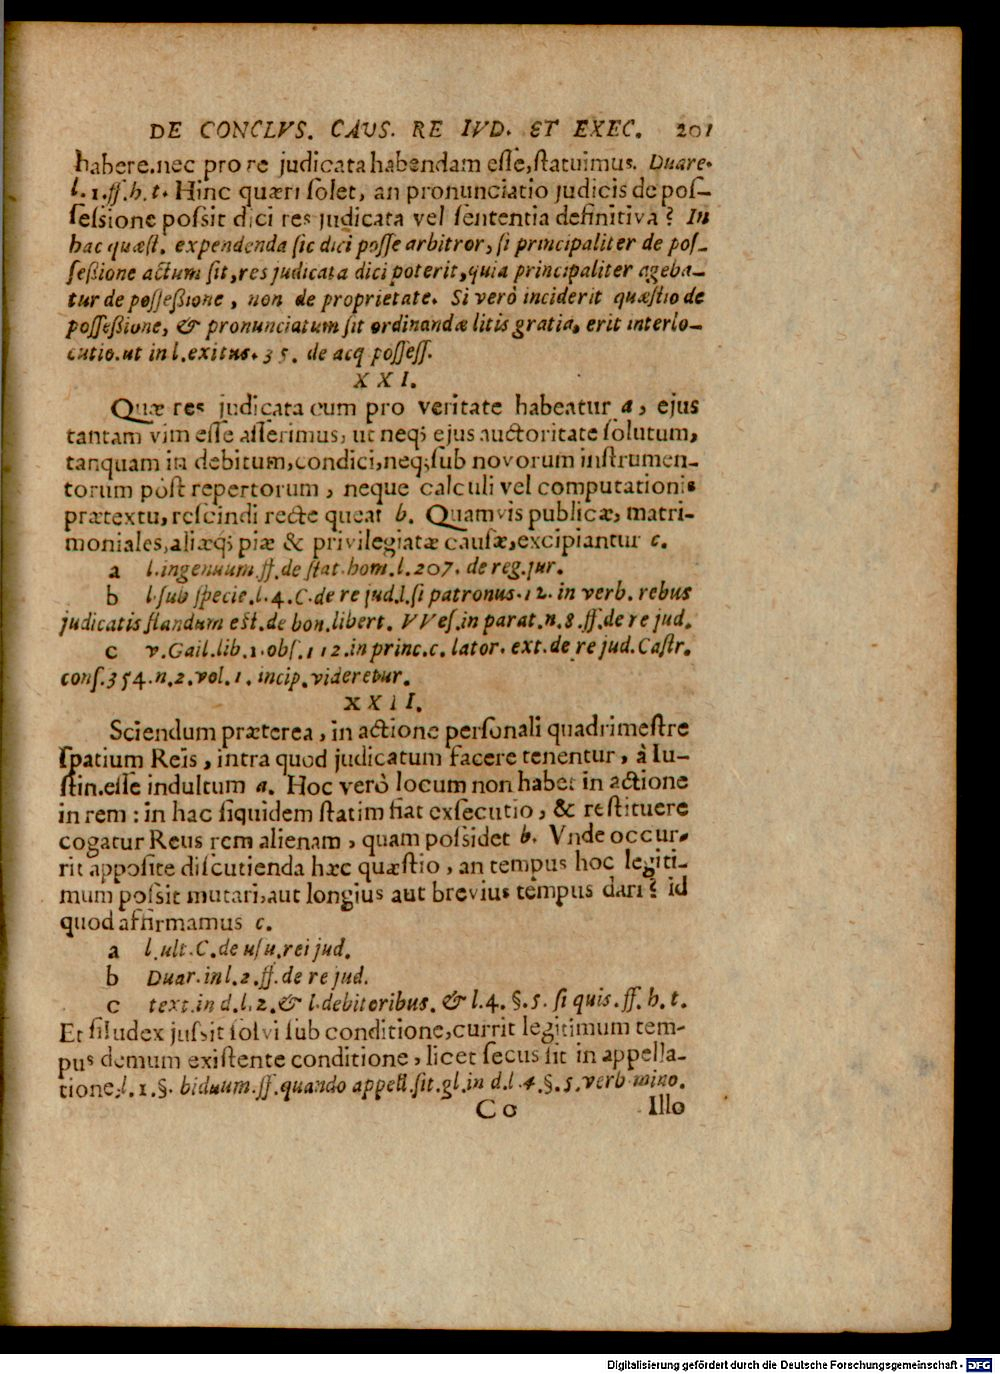 DE CONCLVS. CAUS. RE IVD. ET EXEC. 201
habere. nec pro re judicata habendam esse, statuimus. Duare.
l. 1. ff. h. t. Hinc quæri solet, an pronunciatio judicis de pos-
sessione possit dici res judicata vel sententia definitiva? In
hac quæst. expendenda sic dici posse arbitror, si principaliter de pos-
seßione actum sit, res judicata dici poterit, quia principaliter ageba-
tur de posseßione, non de proprietate. Si verò inciderit quæstio de
posseßione, & pronunciatum sit ordinandæ litis gratia, erit interlo-
cutio. ut in l. exitus. 35. de acq possess.
XXI.
Quæ res judicata cum pro veritate habeatur a, ejus
tantam vim esse asserimus, ut neq; ejus auctoritate solutum,
tanquam in debitum, condici, neq; sub novorum instrumen-
torum pòst repertorum, neque calculi vel computationis
prætextu, rescindi recte queat b. Quamvis publicæ, matri-
moniales, aliæq; piæ & privilegiatæ causæ, excipiantur c.
a l. ingenuum. ff. de stat. hom. l. 207. de reg. jur.
b l. sub specie. l. 4. C. de re jud. l. si patronus. 12. in verb. rebus
judicatis standum est. de bon. libert. VVes. in parat. n. 8. ff. de re jud.
c v. Gail. lib. 1. obs. 112. in princ. c. lator. ext. de re jud. Castr.
cons. 354. n. 2. vol. 1. incip. videretur.
XXII.
Sciendum præterea, in actione personali quadrimestre
spatium Reis, intra quod judicatum facere tenentur, à Iu-
stin. esse indultum a. Hoc verò locum non habet in actione
in rem: in hac siquidem statim fiat exsecutio, & restituere
cogatur Reus rem alienam, quam possidet b. Vnde occur-
rit apposite discutienda hæc quæstio, an tempus hoc legiti-
mum possit mutari, aut longius aut brevius tempus dari? id
quod affirmamus c.
a l. ult. C. de usu. rei jud.
b Duar. in l. 2. ff. de re jud.
c text. in d. l. 2. & l. debitoribus. & l. 4. §. 5. si quis. ff. h. t.
Et si Iudex jussit solvi sub conditione, currit legitimum tem-
pus demum existente conditione, licet secus sit in appella-
tione. l. 1. §. biduum. ff. quando appell. sit. gl. in d. l. 4. §. 5. verb mino.
Cc Illo
Digitalisierung gefördert durch die Deutsche Forschungsgemeinschaft - DFG